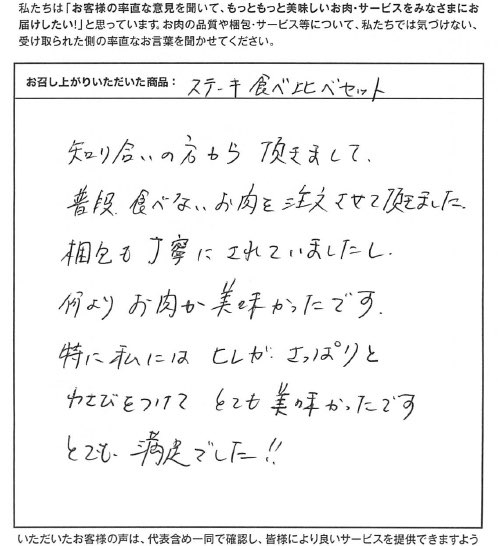 私たちは「お客様の率直な意見を聞いて、もっともっと美味しいお肉・サービスをみなさまにお
届けしたい!」と思っています。お肉の品質や梱包・サービス等について、私たちでは気づけない、
受け取られた側の率直なお言葉を聞かせてください。
お召し上がりいただいた商品： ステーキ食べ比べセット
知り合いの方から 頂きまして、
普段、食べないお肉を注文させて頂きました。
梱包も丁寧にされていましたし、
何よりお肉が美味かったです。
特に私には ヒレが さっぱりと
わさびをつけて とても美味かったです
とても 満足でした!!
いただいたお客様の声は、代表含め一同で確認し、皆様により良いサービスを提供できますよう